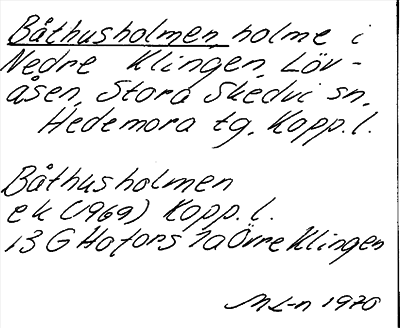 Båthusholmen, holme i
Nedre Klingen, Löv-
åsen, Stora Skedvi sn,
Hedemora tg, Kopp. l.
Båthusholmen
ek (1969) Kopp. l.
13 G Hofors 1a Övre Klingen
ML-n 1970